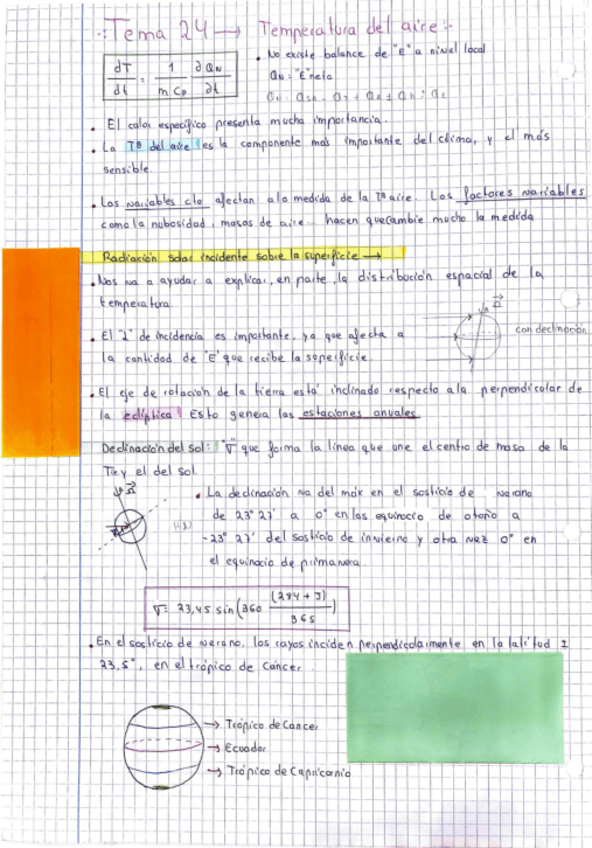 Tema 24 → Temperatura del aire
dT/dt = 1/(m Cp) ∂QN/∂t
• No existe balance de "E" a nivel local
QN = "E" neta
• El calor específico presenta mucha importancia.
• La Tª del aire es la componente más importante del clima, y el más
sensible.
• Las variables cte afectan a la medida de la Tª aire. Los factores variables
como la nubosidad, masas de aire... hacen que cambie mucho la medida
Radiación solar incidente sobre la superficie →
• Nos va a ayudar a explicar, en parte, la distribución espacial de la
temperatura.
• El "∠" de incidencia es importante, ya que afecta a
la cantidad de "E" que recibe la superficie.
Ω
con declinación
• El eje de rotación de la tierra está inclinado respecto a la perpendicular de
la eclíptica. Esto genera las estaciones anuales
Declinación del sol: que forma la línea que une el centro de masa de la
y el del sol.
Ω
• La declinación va del máx en el sosticio de verano
de 23º 27' a 0º en los equinocio de otoño a
-23º 27' del sosticio de invierno y otra vez 0º en
el equinocio de primavera.
= 23,45 sin(360 (284 + J)/365)
• En el sosticio de verano, los rayos inciden perpendicularmente en la latitud
23,5º, en el trópico de Cáncer.
→ Trópico de Cancer
→ Ecuador
→ Trópico de Capricornio